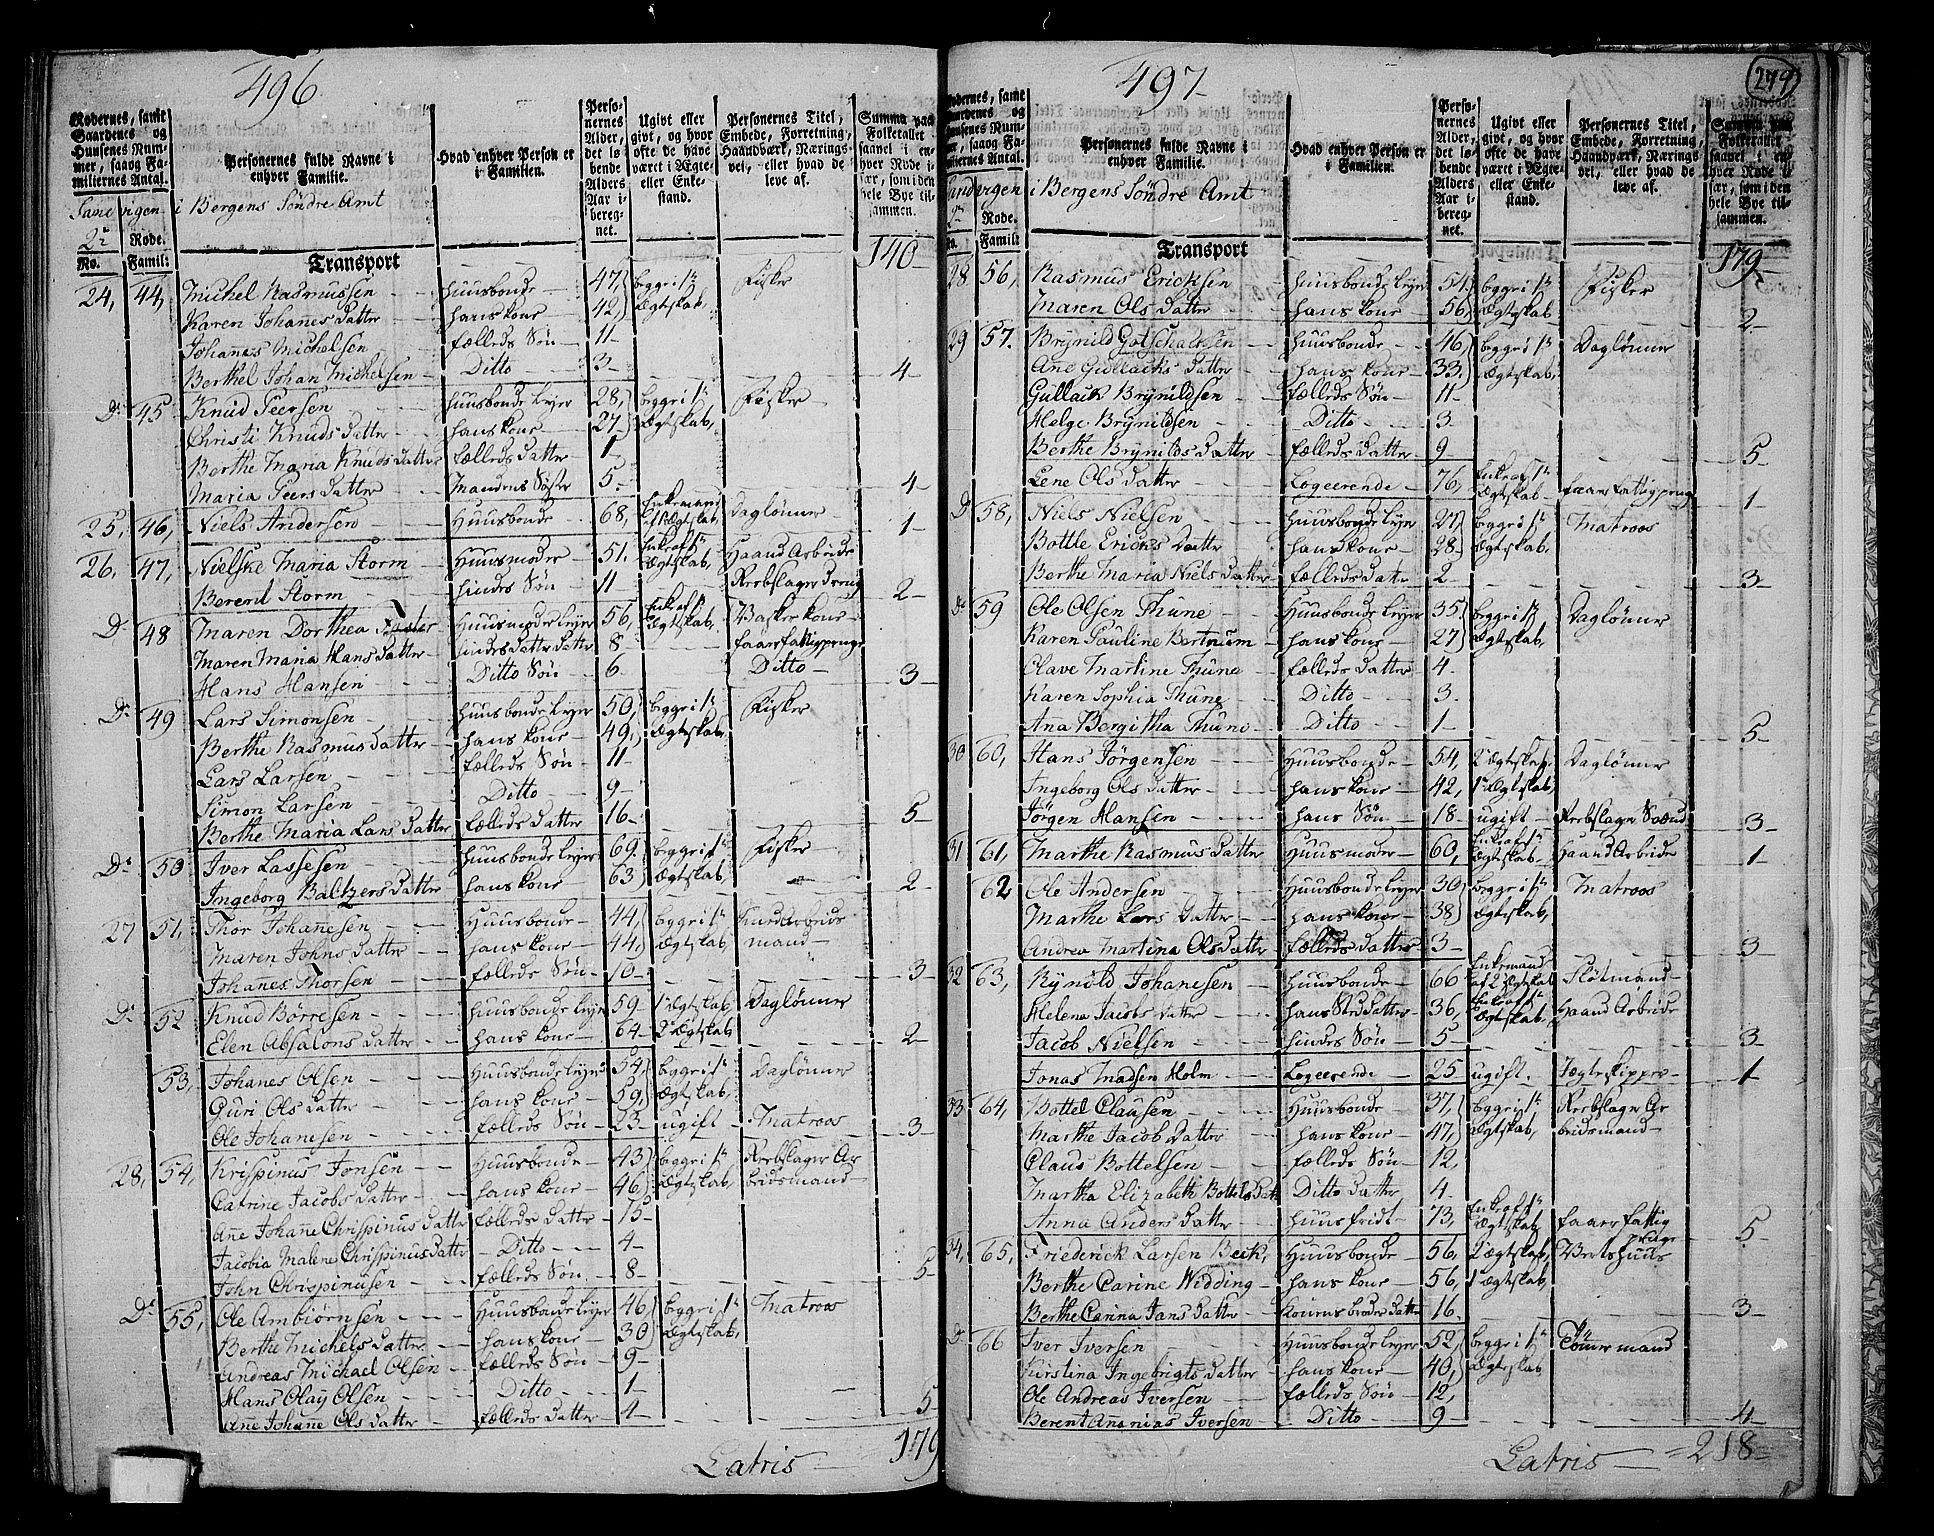 496
Rodernes, samt Gaardenes og Huusenes Nummer, saavog Familiernes Antal.
Personernes fulde Navne i enhver Familie.
Hvad enhver Person er i Familien.
Personernes Alder, det løbende Alders Aar iberegnet.
Ugivt eller givt, og hvor ofte de have været i Ægte- eller Enkestand.
Personernes Titel, Embede, Forretning, Haandværk, Næringsvei, eller hvad de leve af.
Summa paa Folketallet saavel i enhver Rode især, som i den hele Bye tilsammen.
Sandvigen i Bergens Søndre Amt
2n Rode.
No. Famil:
Transport 140
24, 44, Michel Rasmussen huusbonde 47, begge i 1te Fisker
Karen Johanes Datter hans kone 42, Ægteskab
Johanes Michelsen fælleds Søn 11
Berthel Johan Michelsen Ditto 3 4
Do 45 Knud Peersen huusbonde Lejer 28, begge i 1te Fisker
Christi Knuds Datter hans kone 27 Ægteskab,
Berthe Maria Knuds Datter fælleds Datter 1
Maria Peers Datter Mandens Søster 5 4
25, 46, Niels Andersen Huusbonde 68, Enkemand af 1te Ægteskab, Daglønner 1
26, 47, Nielske Maria Storm Huusmoder 51. Enke af 1te Ægteskab, Haand Arbeide
Berent Storm hindes Søn 11 Reebslager Dreng 2
Do 48 Maren Dorthea Huusmoder Lejer 56, Enke af 1te Ægteskab, Vasker kone
Maren Maria Hans Datter hindes datter Datter 8 faaer fattigpenge
Hans Hansen Ditto Søn 6 Ditto 3
Do 49 Lars Simonsen huusbonde Lejer 50, begge i 1te Fisker
Berthe Rasmus Datter hans kone 49, Ægteskab,
Lars Larsen fælleds Søn 11
Simon Larsen Ditto 9
Berthe Maria Lars Datter fælleds Datter 16 5
Do 50 Iver Lassesen huusbonde Lejer 69. begge i 1te Fisker
Ingeborg Baltzers Datter hans kone 63 Ægteskab, 2
27 51, Thor Johanesen Huusbonde 44, begge i 1te
Maren Johns Datter hans kone 44, Ægteskab, mand
Johanes Thorsen fælleds Søn 10 3
Do 52 Knud Børresen huusbonde Lejer 59 1te Ægteskab, Daglønner
Elen Absalons Datter hans kone 64 2det Ægteskab 2
53, Johanes Olsen Huusbonde Lejer 54, begge i 1te Daglønner
Guri Ols Datter hans kone 59, Ægteskab,
Ole Johanesen fælleds Søn 23 ugift Matroos 3
28, 54, Krispinus Jonsen Huusbonde 43 begge i 1te Reebslager Ar
Catrine Jacobs Datter hans kone 46 Ægteskab, beidsmand
Ane Johane Chrispinus Datter fælleds Datter 15
Jacobia Malene Chrispinus Datter Ditto 4
John Chrispinusen fælleds Søn 8 5
Do 55, Ole Ambiørnsen Huusbonde Lejer 46 begge i 1te Matroos
Berthe Michels Datter hans kone 30 Ægteskab,
Andreas Michael Olsen fælleds Søn 9
Hans Olay Olsen Ditto 1
Ane Johane Ols Datter fælleds Datter 4 5
Latris 179
497
279
Rodernes, samt Gaardenes og Huusenes Nummer, saavog Familiernes Antal.
Personernes fulde Navne i enhver Familie.
Hvad enhver Person er i Familien.
Personernes Alder, det løbende Alders Aar iberegnet.
Ugivt eller givt, og hvor ofte de have været i Ægte- eller Enkestand.
Personernes Titel, Embede, Forretning, Haandværk, Næringsvei, eller hvad de leve af.
Summa paa Folketallet saavel i enhver Rode især, som i den hele Bye tilsammen.
Sandvigen i Bergens Søndre Amt
2n Rode.
No. Famil:
Transport 179
28 56, Rasmus Ericksen huusbonde Lejer 54 begge i 1te Fisker
Maren Ols Datter hans kone 56 Ægteskab 2
29 57. Brynild Gotschalksen huusbonde 46, begge i 1te Daglønner
Ane Gullachs Datter hans kone 33 Ægteskab,
Gullach Brynildsen fælleds Søn 11
Helge Brynildsen Ditto 3
Berthe Brynilds Datter fælleds Datter 9 5
Lene Ols Datter Logeerende 76, Enke af 1te Ægteskab faaer fattigpenge 1
Do 58, Niels Nielsen huusbonde Lejer 27 begge i 1te Matroos
Bottle Ericks Datter hans kone 28 Ægteskab,
Berthe Maria Niels Datter fælleds Datter 2 3
Do 59 Ole Olsen Thune Huusbonde Lejer 35 begge i 1te Daglønner
Karen Pauline Bertnum hans kone 27 Ægteskab
Olave Martine Thune fælleds Datter 4
Karen Sophia Thune Ditto 3
Ana Bergitha Thune Ditto 1 5
30 60, Hans Jørgensen Huusbonde 54, 2det Ægteskab Daglønner
Ingeborg Ols Datter hans kone 42, 1te Ægteskab,
Jørgen Hansen hans Søn 18 ugift Reebslager Svend 3
31 61, Marthe Rasmus Datter Huusmoder 60, Enke af 1te Ægteskab, Haand Arbeide 1
62 Ole Andersen Huusbonde Lejer 30 begge i 1te Matroos
Marthe Lars Datter hans kone 38 Ægteskab,
Andrea Martina Ols Datter fælleds Datter 3 3
32 63, Rynold Johanesen huusbonde 66 Enkemand af 2det Ægteskab Flotmand
Helena Jacobs Datter hans Sted Datter 36, Enke af 1te Ægteskab, Haand Arbeide
Jacob Nielsen hindes Søn 5 3
Jonas Madsen Holm Logeerende 25 ugift. Jægteskipper 1
33 64, Bottel Clausen Huusbonde 37, begge i 1te Reebslager Ar
Marthe Jacob Datter hans kone 47, Ægteskab, beidsmand
Claus Bottelsen fælleds Søn 12,
Martha Elizabeth Bottels Datt Ditto Datter 4
Anna Anders Datter huusfridt 73, Enke af 1te Ægteskab, faaer fattig penge 5
34, 65, Friederick Larsen Beck, Huusbonde 56, 2det Ægteskab, Vertshuus
Berthe Carine Widding hans kone 56, 1te Ægteskab,
Berthe Carina Jans Datter Konens broder Datter 16. 3
Do 66 Iver Iversen Huusbonde Lejer 52, begge i 1te Tømermand
Kirstina Ingebrigts Datter hans kone 40, Ægteskab
Ole Andreas Iversen fælleds Søn 12,
Berent Ananias Iversen Ditto 9 4
Latris 218